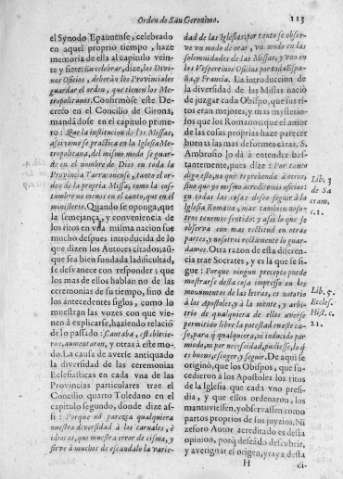 Orden de San Geronimo. 113
el Synodo Epaunense, celebrado
en aquel proprio tiempo, haze
memoria de ella al capitulo vein-
te y siete: En celebrar, dize, los Divi-
nos Oficios, deberàn los Provinciales
guardar el orden, que tienen los Me-
tropolitanos. Confirmòse este De-
creto en el Concilio de Girona,
mandãdose en el capitulo prime-
ro: Que la institucion de las Missas,
assi como se practica en la Iglesia Me-
tropolitana, del mismo modo se guar-
de en el nombre de Dios en toda la
Provincia Tarraconense, tanto el or-
den de la propria Missa, como la cos-
tumbre no menos en el canto, que en el
ministerio. Quando se oponga, que
la semejança, y conveniencia de
los ritos en vna misma nacion fue
mucho despues introducida de lo
que dizen los Autores citados, assi
que sea bien fundada la dificultad,
se desvanece con responder: que
los mas de ellos hablan no de las
ceremonias de su tiempo, sino de
los antecedentes siglos, como lo
muestran las vozes con que vie-
nen à explicarse, haziendo relaciõ
de lo passado:
y otras à este mo-
do. La causa de averse antiquado
la diversidad de las ceremonias
Ecclesiasticas en cada vna de las
Provincias particulares trae el
Concilio quarto Toledano en el
capitulo segundo, donde dize as-
si: Porque no parezca qualquiera
nuestra diversidad à los carnales, è
idiotas, que muestra error de cisma, y
sirve à muchos de escandalo la varie-
dad de las Iglesias: por tanto se obser-
ve vn modo de orar, vn modo en las
solemnidades de las Missas, y vno en
los Vespertinos Oficios por toda Espa-
ña, y Francia. La introduccion de
la diversidad de las Missas naciò
de juzgar cada Obispo, que sus ri-
tos eran mejores, y mas mysterio-
sos que los Romanos: que el amor
de las cosas proprias haze parecer
buenas las que no fueran tales. S.
Ambrosio lo dà à entender bas-
tantemente, pues dize: Por tanto
digo esto, no que reprehenda à otros,
sino que yo mismo acredite mis oficios:
en todas las cosas deseo seguir à la
Iglesia Romana, mas tambien noso-
tros tenemos sentido: y assi lo que se
observa con mas rectitud en otras
partes, nosotros rectamente lo guar-
damos. Otra razon de esta diferen-
cia trae Socrates, y es la que se si-
gue: Porque ningun precepto puede
mostrarse de esta cosa impresso en los
monumentos de las letras, es notorio
à los Apostoles,
trio de qualquiera de ellos averse
permitido libre la potestad en este ca-
so, para que qualquiera, ni inducido por
miedo, ni por necessidad, pudiesse, lo q
es bueno, escoger, y seguir. De aqui se
originò, que los Obispos, que su-
cedieron à los Apostoles los ritos
de la Iglesia que cada vno presi-
dia, y que ellos ordenaron, los
mantuviessen, y observassen como
partos proprios de sus juyzios. Ni
zeforo Autor acreditado es desta
opinion, porq̃ deseãdo descubrir,
y averiguar el origen, y raya desta
H ci-
Lib. 3
de Sa
cram.
c. 1.
Lib. 5.
Eccles.
Hist. c.
21.